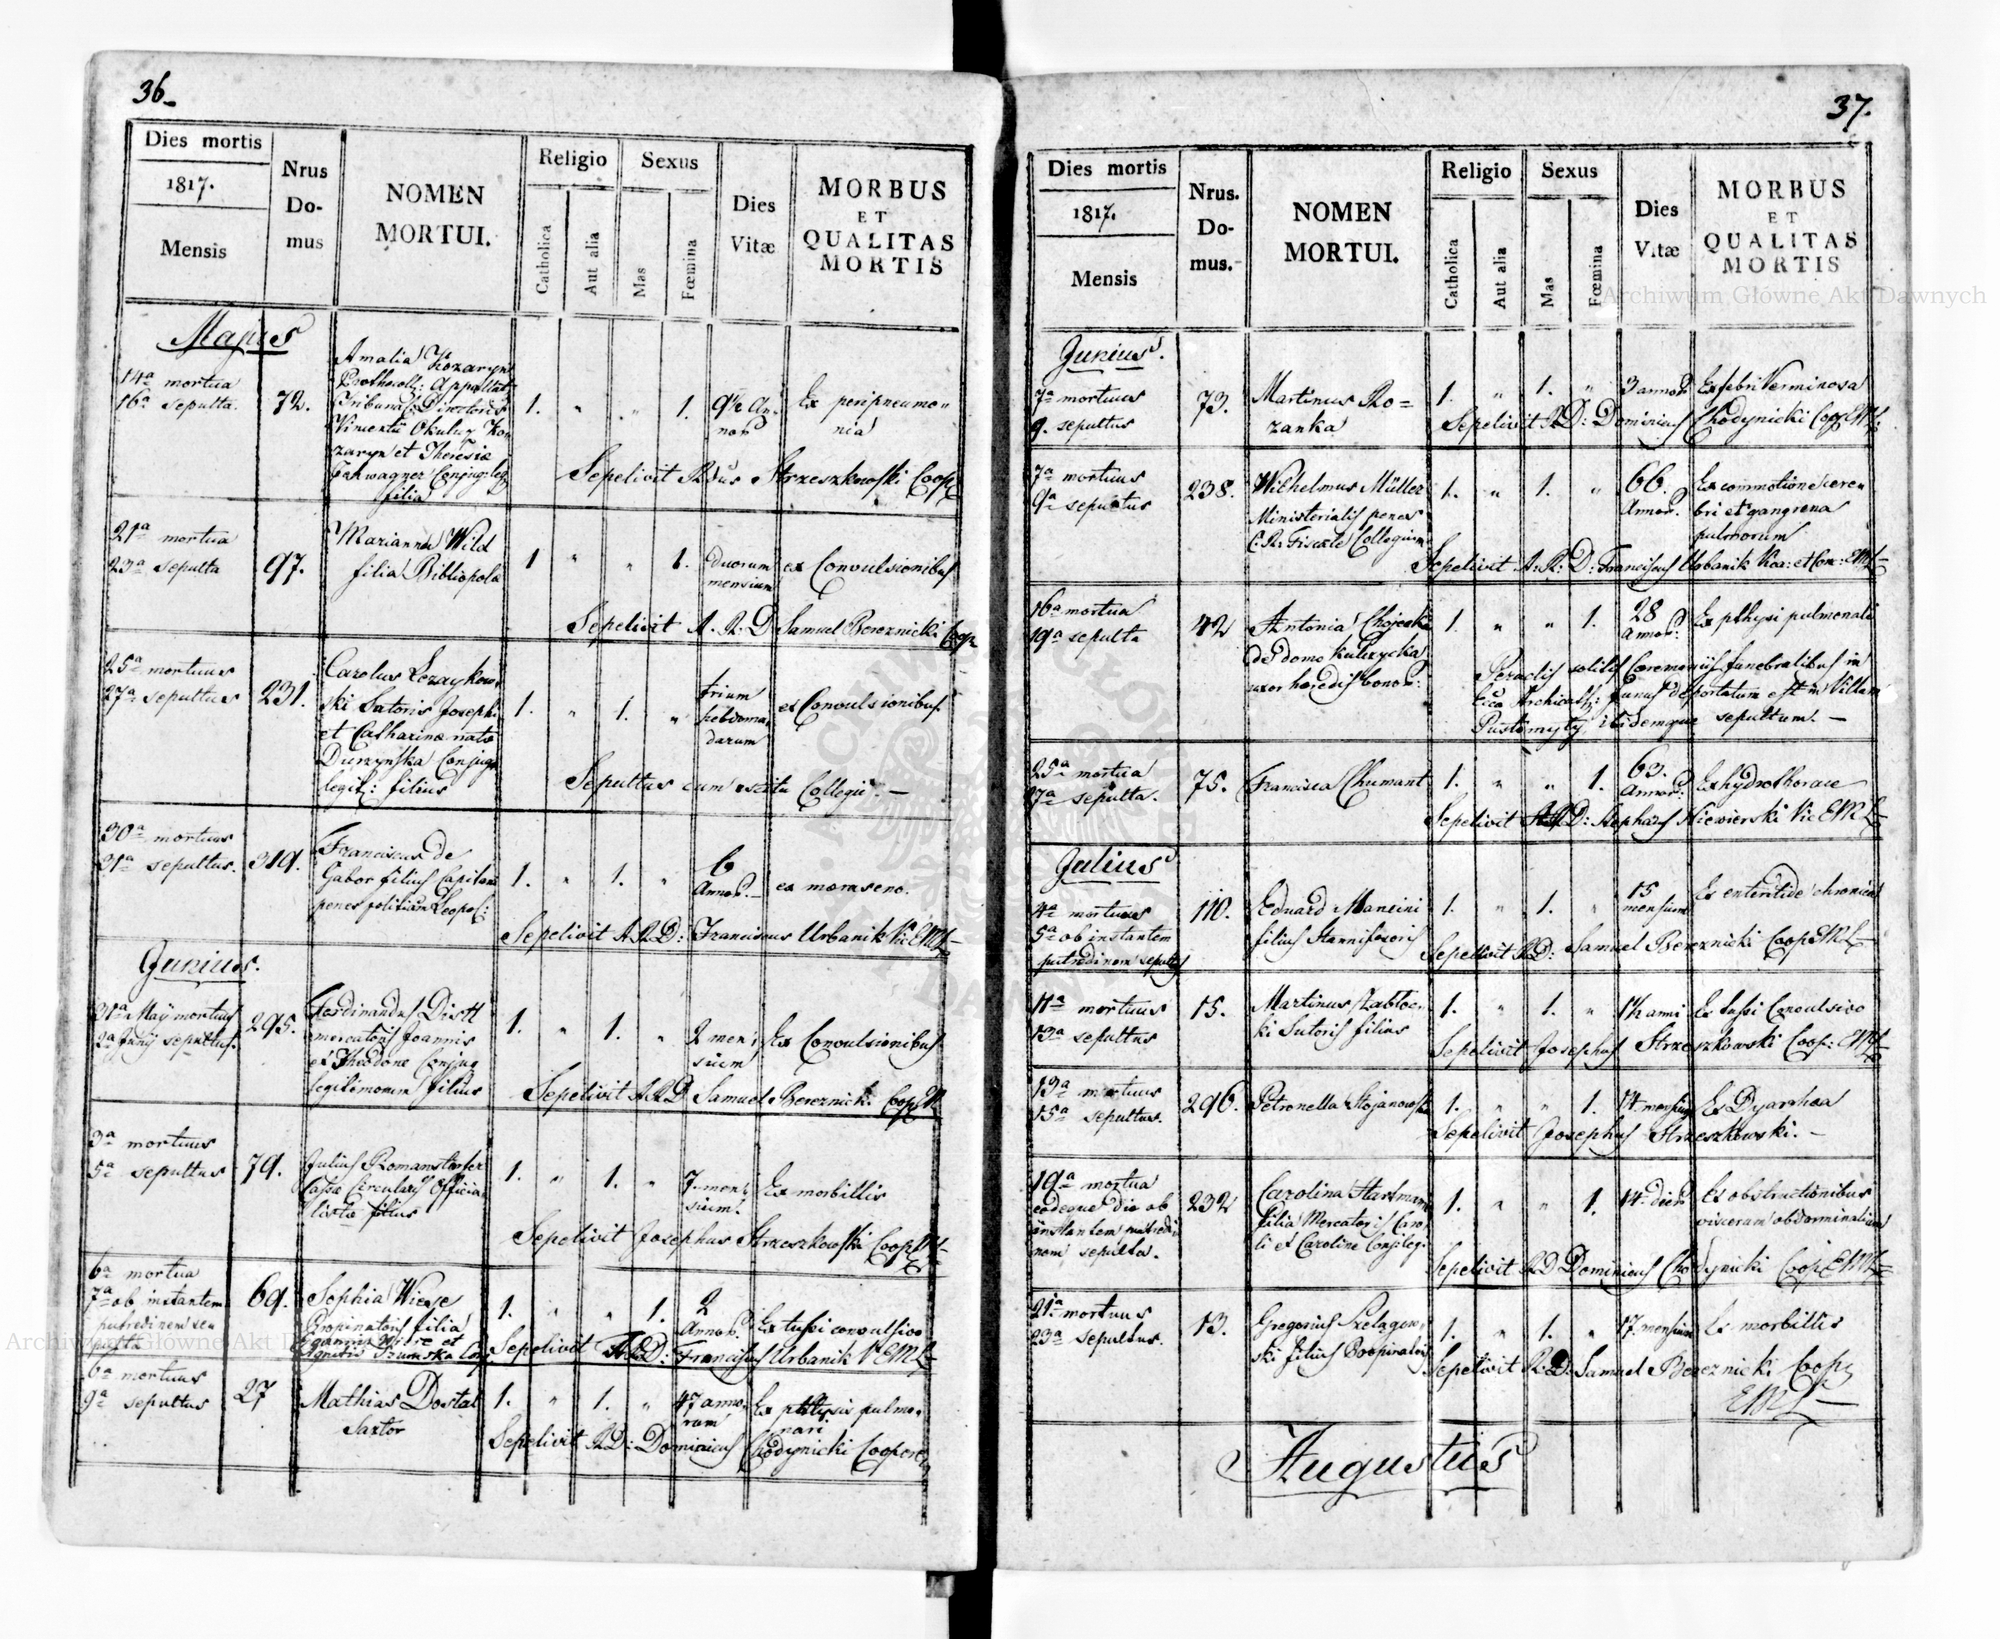 36.
Dies mortis
1817.
Mensis
Nrus
Do-
mus
NOMEN
MORTUI.
Religio
Catholica
Aut alia
Sexus
Mas
Fœmina
Dies
Vitæ
MORBUS
ET
QUALITAS
MORTIS
Majus
14a mortua
16a sepulta.
72.
Amalia Kozaryn
Vincentii Okuluz Ko
zaryn et Theresiæ
Conjug: leg
filia
1. " " 1.
9½ An-
nor
Ex peripneumo-
nia
Sepelivit Rdus Strzeszkowski Coop
21a mortua
23a sepulta
97.
Marianna Wild
filia Bibliopola
1 " " 1.
duorum
mensium
ex Convulsionibus
Sepelivit A. R. D Samuel Bereznicki Coop
25a mortuus
27a sepultus
231.
Carolus Lezaykow
ski Sutoris Josephi
et Catharinæ nata
Durzynska Conjug
legit: filius
1. " 1. "
trium
hebdoma
darum
ex Convulsionibus
Sepultus cum scitu Collegii. —
30a mortuus
31a sepultus.
319.
Franciscus de
Gabor filius Capitani
penes politiam Leopol:
1. " 1. "
6
Annor.
ex marasmo.
Sepelivit A R D: Franciscus Urbanik Vic EML
Junius.
31a Maÿ mortuus
2a Junÿ sepultus.
295.
Ferdinandus Distl
mercatoris Joannis
et Theodoræ Conjug
legitimorum filius
1. " 1. "
2 men-
sium
Ex Convulsionibus
Sepelivit A R D Samuel Bereznicki Coop
3a mortuus
5a sepultus
79.
Julius Romanstorfer
Cassæ Circularis Officia-
listæ filius
1. " 1. "
7. men-
sium.
Ex morbillis
Sepelivit Josephus Strzeszkowski Coop EML
6a mortua
7a ob instantem
putredinem se
pulta
69.
Sophia Wiese
Propinatoris filia
Joannis Wiese et
Agnetis Szumska Conj.
1. " " 1.
2
Annor.
Ex tussi convulsivo
Sepelivit A R D: Franciscus Urbanik V EML
6a mortuus
9a sepultus
27
Mathias Dostal
Sartor
1. " 1. "
47 anno-
rum
Ex phtysis pulmo-
nari
Sepelivit R D: Dominicus Chodynicki Cooper
37.
Dies mortis
1817.
Mensis
Nrus.
Do-
mus.
NOMEN
MORTUI.
Religio
Catholica
Aut alia
Sexus
Mas
Fœmina
Dies
Vitæ
MORBUS
ET
QUALITAS
MORTIS
Junius.
7a mortuus
9. sepultus
73.
Martinus Ro=
zanka
1. " 1. "
3 annor
Ex febri Verminosa
Sepelivit R D: Dominicus Chodynicki Coop EML
7a mortuus
9a sepultus
238.
Wilhelmus Müller
Ministerialis penes
C. R. Fiscale Collegium
1. " 1. "
66.
Annor.
Ex commotione cere-
bri et gangrena
pulmorum
Sepelivit A: R: D: Franciscus Urbanik EML
16a mortua
19a sepulta
42
Antonia Chojecka
de domo Kulczycka
uxor heredis bonor:
1. " " 1.
28
Annor:
Ex pthysi pulmonali
Peractis solitis Cæremoniis funebralibus in
Ecca Archicath: funus deportatum est in Villam
Pustomyty, ibidemque sepultum. —
25a mortua
27a sepulta.
75.
Francisca Chumant
1. " " 1.
63.
Annor:
Ex hydrothorace
Sepelivit A R D: Stephans Niewierski Vic EML
Julius
4a mortuus
5a ob instantem
putredinem sepultus
110.
Eduard Mancini
filius Stannifusoris
1. " 1. "
15
mensium
Ex enteritide chronica
Sepelivit R D: Samuel Bereznicki Coop EML
11a mortuus
13a sepultus
15.
Martinus Zabloc-
ki Sutoris filius
1. " 1. "
1½ anni
Ex tussi Convulsivo
Sepelivit Josephus Strzeszkowski Coop: EML
13a mortuus
15a sepultus.
296.
Petronella Stojanowska
1. " " 1.
14 mensium
Ex Dyarrhœa
Sepelivit Josephus Strzeszkowski. —
19a mortua
eodeque die ob
instantem putredi
nem sepulta.
232
Carolina Hartmann
filia Mercatoris Caro-
li et Carolinæ Conj: leg:
1. " " 1.
14. dier
Ex obstructionibus
viscerum abdominalium
Sepelivit R D Dominicus Chodynicki Coop EML
21a mortuus
23a sepultus.
13.
Gregorius Szelągow-
ski filius Propinatoris
1. " 1. "
17. mensium
Ex morbillis
Sepelivit R: D: Samuel Bereznicki Coop
EML —
Augustus
Archiwum Główne Akt Dawnych
Archiwum Główne Akt D